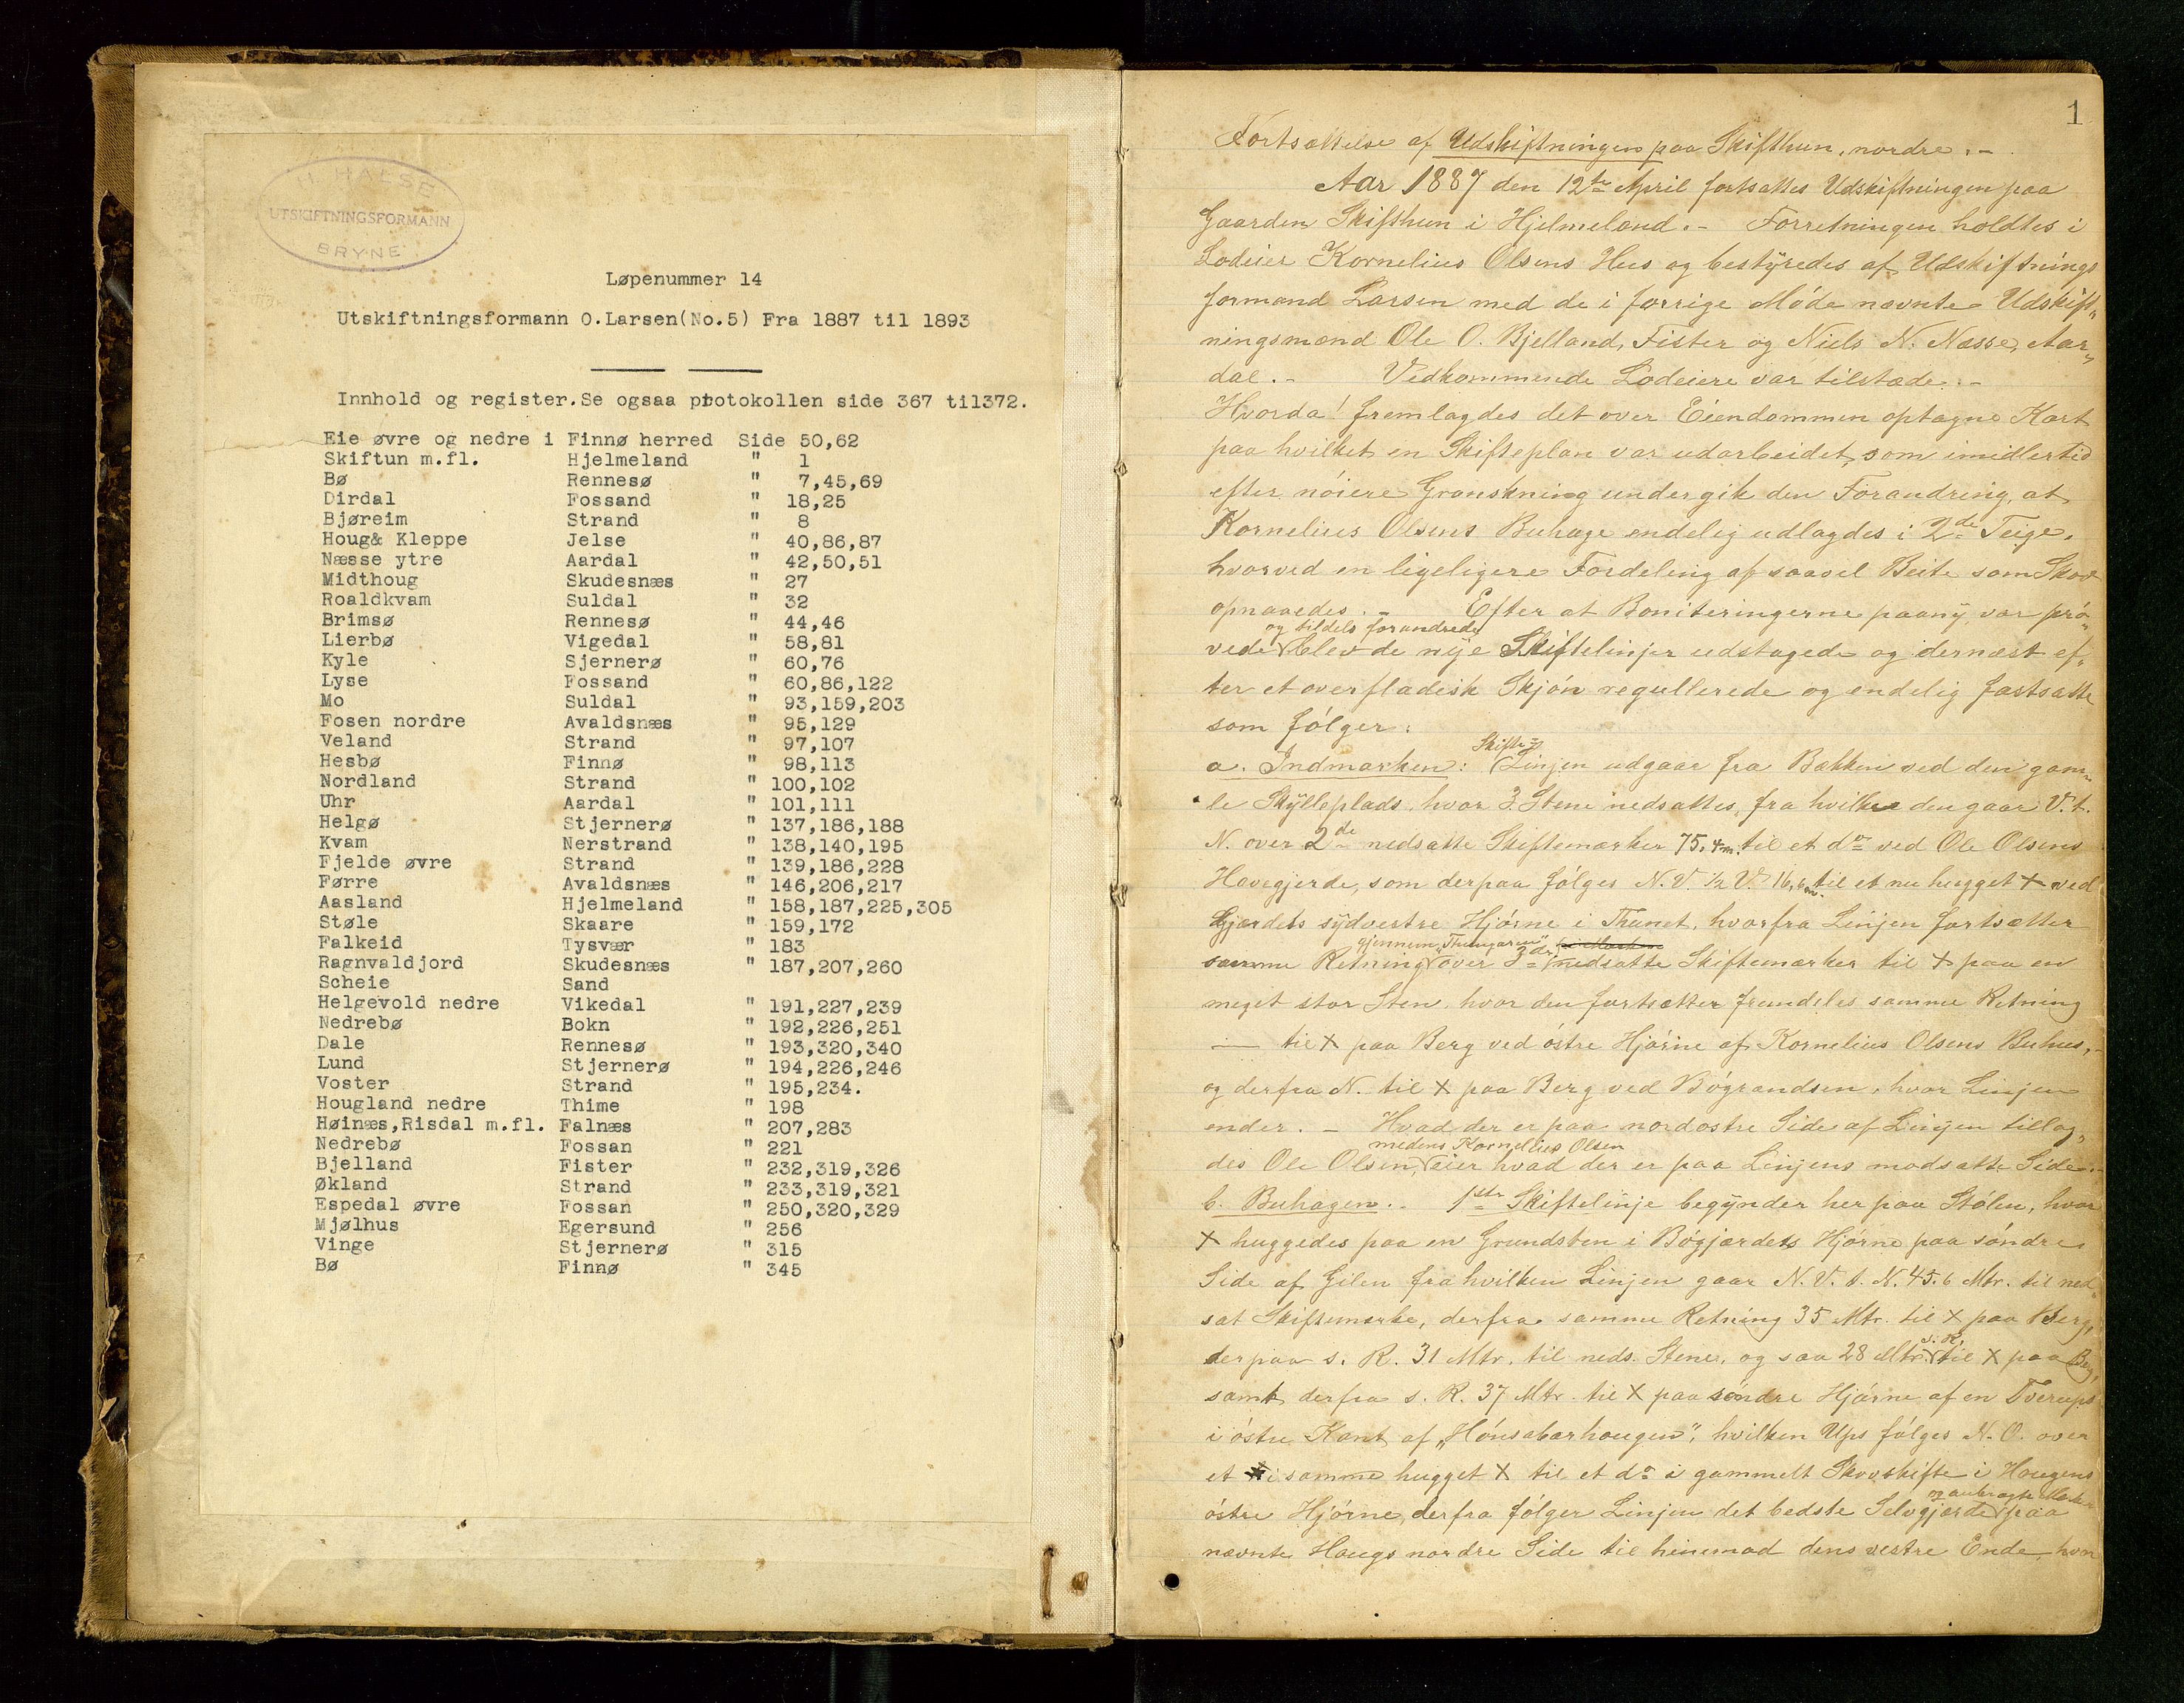 H. HALSE
UTSKIFTNINGSFORMANN
BRYNE
Løpenummer 14
Utskiftningsformann O.Larsen(No.5) Fra 1887 til 1893
Innhold og register.Se ogsaa protokollen side 367 til372.
Eie øvre og nedre i Finnø herred Side 50,62
Skiftun m.fl. Hjelmeland " 1
Bø Rennesø " 7,45,69
Dirdal Fossand " 18,25
Bjøreim Strand " 8
Houg& Kleppe Jelse " 40,86,87
Næsse ytre Aardal " 42,50,51
Midthoug Skudesnæs " 27
Roaldkvam Suldal " 32
Brimsø Rennesø " 44,46
Lierbø Vigedal " 58,81
Kyle Sjernerø " 60,76
Lyse Fossand " 60,86,122
Mo Suldal " 93,159,203
Fosen nordre Avaldsnæs " 95,129
Veland Strand " 97,107
Hesbø Finnø " 98,113
Nordland Strand " 100,102
Uhr Aardal " 101,111
Helgø Stjernerø " 137,186,188
Kvam Nerstrand " 138,140,195
Fjelde øvre Strand " 139,186,228
Førre Avaldsnæs " 146,206,217
Aasland Hjelmeland " 158,187,225,305
Støle Skaare " 159,172
Falkeid Tysvær " 183
Ragnvaldjord Skudesnæs " 187,207,260
Scheie Sand
Helgevold nedre Vikedal " 191,227,239
Nedrebø Bokn " 192,226,251
Dale Rennesø " 193,320,340
Lund Stjernerø " 194,226,246
Voster Strand " 195,234.
Hougland nedre Thime " 198
Høinæs,Risdal m.fl. Falnæs " 207,283
Nedrebø Fossan " 221
Bjelland Fister " 232,319,326
Økland Strand " 233,319,321
Espedal øvre Fossan " 250,320,329
Mjølhus Egersund " 256
Vinge Stjernerø " 315
Bø Finnø " 345
1
Fortsættelse af Udskiftningen paa Skifthun, nordre. -
Aar 1887 den 12te April fortsattes Udskiftningen paa
Gaarden Skifthun i Hjelmeland. - Forretningen holdtes i
Lodeier Kornelius Olsens Hus og bestyredes af Udskiftnings
formand Larsen med de i forrige Møde nævnte Udskift„
ningsmænd Ole O. Bjelland, Fister og Niels N. Næsse, Aar„
dal. - Vedkommende Lodeiere var tilstæde. -
Hvorda! fremlagdes det over Eiendommen optagne Kart
paa hvilket en Skifteplan var udarbeidet, som imidlertid
efter nøiere Granskning undergik den Forandring, at
Kornelius Olsens Buhage endelig udlagdes i 2de Teige,
hvorved en ligeligere Fordeling af saavel Beite som Skov
opnaaedes. - Efter at Boniteringerne paany var prø„
og tildels forandrede
vede blev de nye Skiftelinjer udstagede og dernæst ef„
ter et overfladisk Skjøn regullerede og endelig fastsatte
som følger:
Skifte=
a. Indmarken: Linjen udgaar fra Bækken ved den gam„
le Skylleplads, hvor 3 Stene nedsattes, fra hvilke den gaar V. t.
N. over 2de nedsatte Skiftemærker 75,4m. til et do ved Ole Olsens
Havegjerde, som derpaa følges N.V. 1/2 V. 16,6m. til et nu hugget + ved
Gjærdets sydvestre Hjørne i Thunet, hvorfra Linjen fortsætter
gjennem „Thungaren”
samme Retning over 3de nedsatte Skiftemærker til + paa en
meget stor Sten, hvor den fortsætter fremdeles samme Retning
— til X paa Berg ved østre Hjørne af Kornelius Olsens Buhus, -
og derfra N. til X paa Berg ved Bøgrandsen, hvor Linjen
ender. - Hvad der er paa nordøstre Side af Linjen tillag„
medens Kornelius Olsen
des Ole Olsen, eier hvad der er paa Linjens modsatte Side. -
b. Buhagen. - 1ste Skiftelinje begynder her paa Stølen, hvor
X huggedes paa en Grundsten i Bøgjærdets Hjørne paa søndre
Side af Gilen fra hvilken Linjen gaar N. V. t. N. 45.6 Mtr. til ned„
sat Skiftemærke, derfra samme Retning 35 Mtr. til X paa Berg,
s. R.
derpaa s. R. 31 Mtr. til neds. Stene, og saa 28 Mtr. til X paa Berg,
samt derfra s. R. 37 Mtr. til X paa søndre Hjørne af en Tverups
i østre Kant af „Hønsabærhougen”, hvilken Ups følges N.O. over
et i samme hugget X til et do i gammelt Skovskifte i Hougens
og anbragte Mærker
østre Hjørne, derfra følger Linjen det bedste Selvgjærde paa
nævnte Hougs nordre Side til henimod dens vestre Ende, hvor